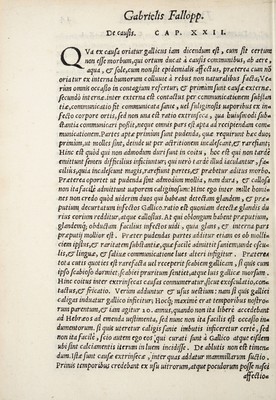 Gabrielis Fallopp.
De causis. CAP. XXII.
QVa ex causa oriatur gallicus iam dicendum est, cum sit certum
non esse morbum, qui ortum ducat à causis communibus, ab aere,
aqua, & sole, cum non sit epidemialis affectus, præterea cum nõ
oriatur ex interna humorum colluuie à rebus non naturalibus facta, Ve
rum omnis occasio in contagium refertur; & primùm sunt causæ externæ.
secundò internæ. inter externa est contactus per communicationem substan
tiæ, communicatio fit communicatæ sanie, uel fuliginosis uaporibus ex in
fecto corpore ortis, sed non una est ratio extrinseca, qua huiusmodi sub-
stantia communicari possit, neque omnis pars est apta ad recipiendam com
municationem. Partes aptæ primùm sunt pudenda, quæ requirunt hæc duo;
primùm, ut molles sint, deinde ut per attritionem incalescant, & rarefiant;
Hinc est quòd qui non admodum duri sunt in coitu, hoc est qui non tardè
emittunt semen difficilius inficiuntur, qui uerò tardè illud iaculantur, fa-
cilius, quia incalescunt magis, rarefiunt partes, & præbetur aditus morbo.
Præterea oportet ut pudenda sint admodum mollia, non dura, & callosa
non ita facilè admittunt uaporem caliginosum: Hinc ego inter mille homi
nes non credo quòd uiderim duos qui habeat detectam glandem, & præ-
putium decurtatum infectos Gallico. ratio est quoniam detecta glandis du
rius corium redditur, atque callosus. At qui oblongum habent præputium,
glandemq́; obductam facilius infectos uidi, quia glans, & interna pars
præputij mollior est. Præter pudendas partes aditur etiam ob molli-
ciem ipsius, & raritatem substantiæ, quæ facilè admittit saniem: unde oscu-
lis, & linguæ, & saliuæ communicatione lues altera infigitur. Præterea
tota cutis quoties est rarefacta uel receperit scabiem gallicam, si quis cum
ipso scabioso dormiet. scabiei pruritum sentiet, atque lues gallica morsum.
Hinc coitus inter extrinsecas causas connumeratur, sicut exosculatio, con-
tactus, & fricatio. Verùm adduntur & usus uestium: nam si quis gallici
caligas induatur gallico inficitur; Hocq́; maximè erat temporibus nostro-
rum parentum, & iam agitur 20. annus, quando non ita liberè accedebant
ad Hebræos ad emenda uestimenta, sed nunc non ita facilis est occasio in-
dumentorum. si quis uteretur caligis sanie imbutis inficeretur certè, sed
non ita facilè, scio autem ego eos qui curati sunt à Gallico atque eisdem
ubi sint calciamentis iterum in luem incidisse. De ablatis non est timen-
dum. Istæ sunt causæ extrinsecæ, inter quas addatur mammillarum suctio.
Primis temporibus credebant ex usu uitrorum, atque poculorum posse nasci
affectio-